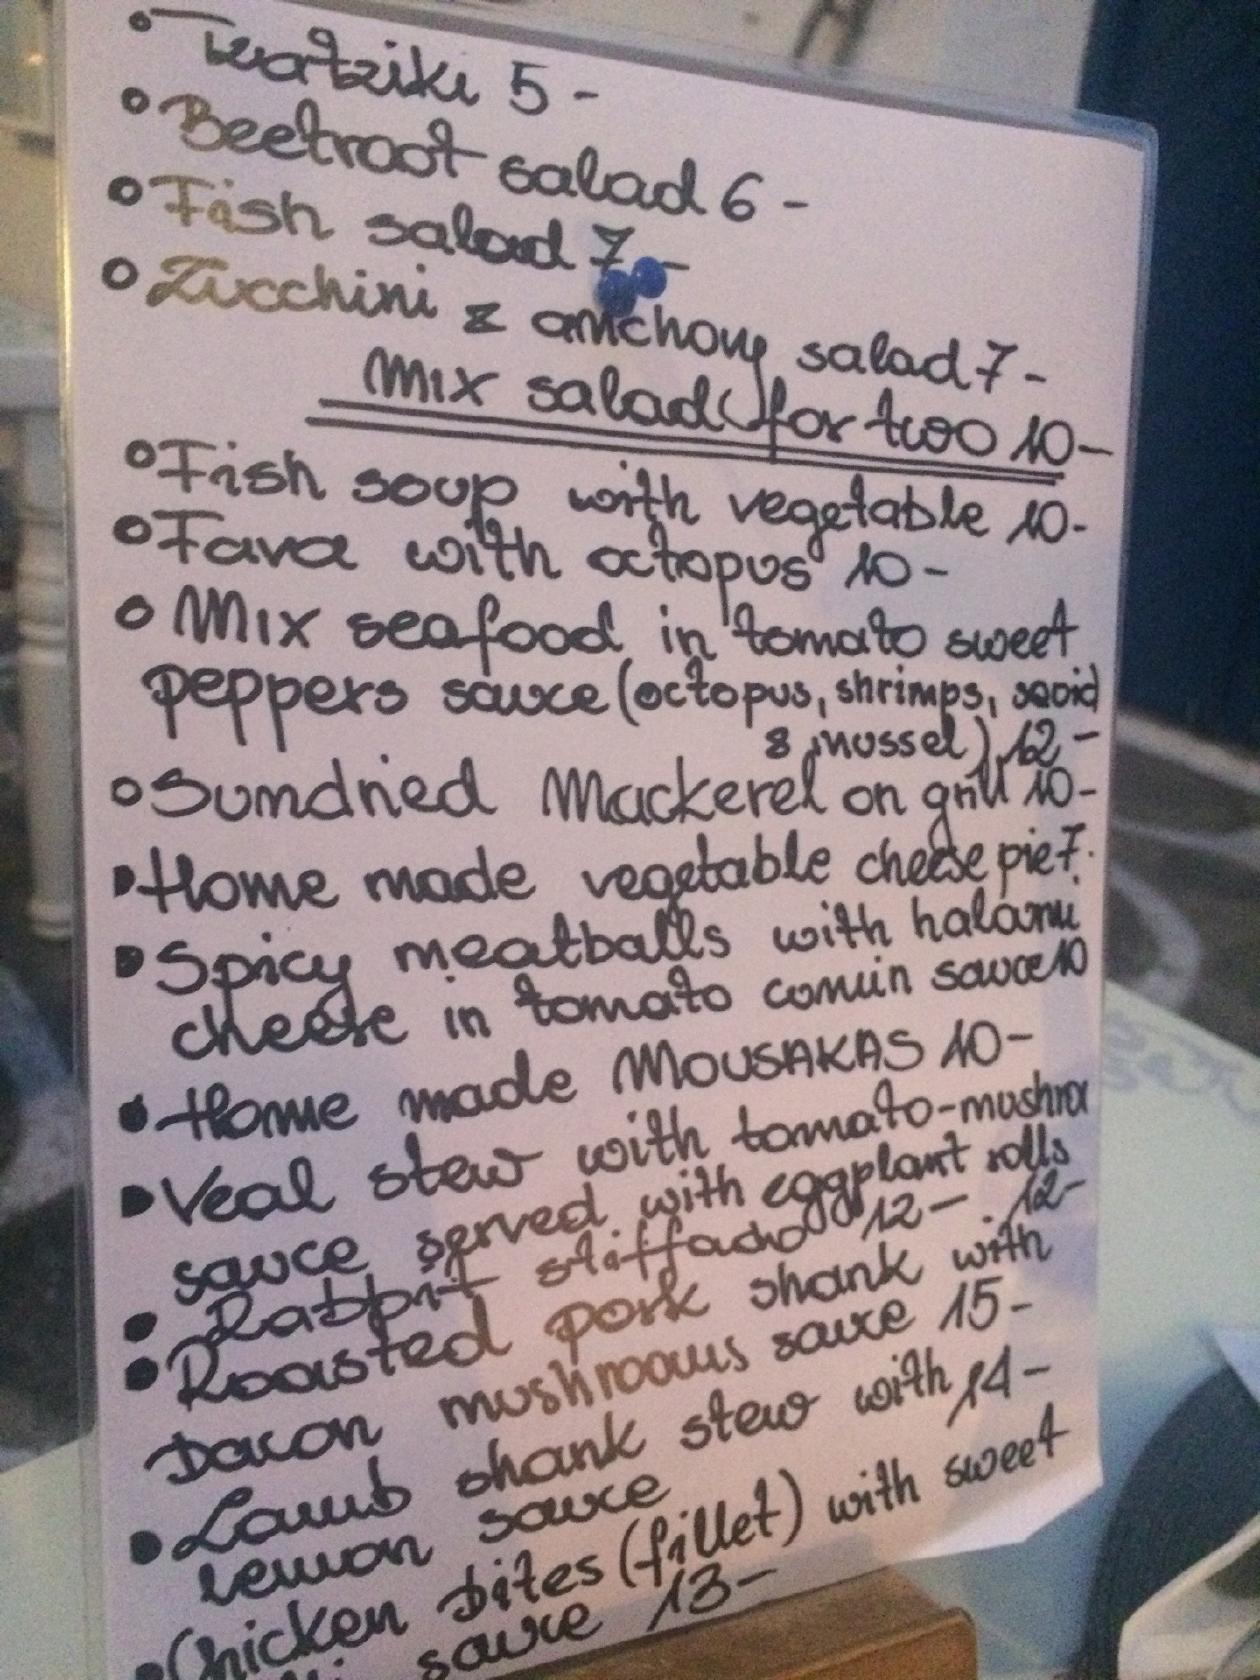 Tzatziki 5 -
Beetroot salad 6 -
Fish salad 7 -
Zucchini & anchovy salad 7 -
Mix salad (for two 10 -
Fish soup with vegetable 10 -
Fava with octopus 10 -
Mix seafood in tomato sweet
peppers sauce (octopus, shrimps, squid
& mussel) 12 -
Sundried Mackerel on grill 10 -
Home made vegetable cheese pie 7.
Spicy meatballs with halumi
cheese in tomato cumin sauce 10
Home made MOUSAKAS 10 -
Veal stew with tomato-mushro
sauce served with eggplant rolls
12 -
Rabbit stiffado 12 -
Roasted pork shank with
bacon mushrooms sauce 15 -
Lamb shank stew with 14 -
lemon sauce
Chicken bites (fillet) with sweet
sauce 13 -